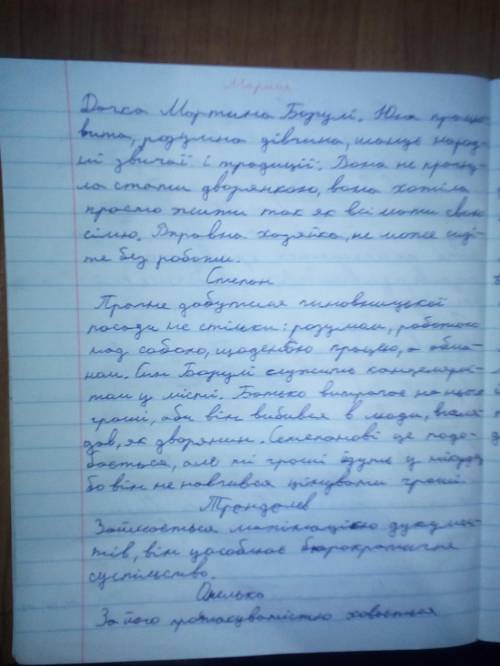 Марися
Дочка Мартина Борулі. Юна працьо
вита, розумна дівчина, шанує народ
ні звичаї і традиції. Вона не прагну
ла стати дворянкою, вона хотіла
просто жити так як всі мати свою
сімю. Вправна хазяйка, не може сиді
ти без роботи.
Степан
Прагне добутися чиновницької
посади не стільки: розумом, роботою
над собою, щоденною працею, а обма
ном. Син Борулі служить канцеляри
том у місті. Батько витрачає на нього
гроші, аби він вибився в люди, вигля
дав, як дворянин. Семепанові це подо
бається, але ті гроші йдуть у
бо він не навчився цінувати гроші
Трандалев
Займається махінацією дукумен
тів, він уособлює бюрократичне
суспільство.
Омелько
За його простакуватістю ховається